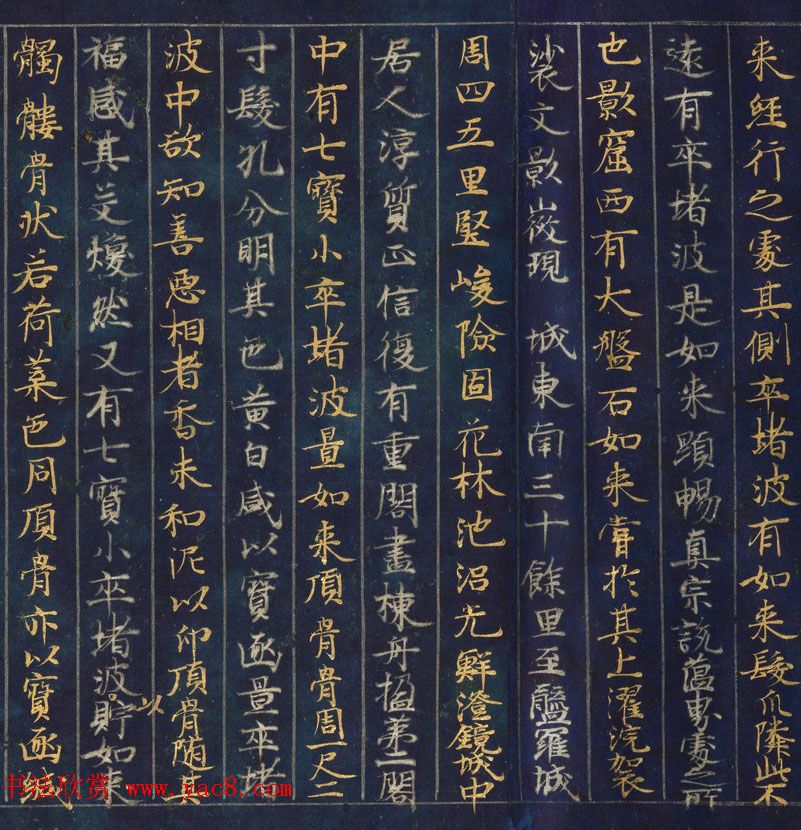 来經行之處其側卒堵波有如来髮爪隣此不
遠有卒堵波是如来顯暢真宗說蘊界處之所
也影窟西有大盤石如来甞於其上濯浣袈
裟文影微現城東南三十餘里至醯羅城
周四五里竪峻險固花林池沼光鮮澄鏡城中
居人淳質正信復有重閣畫棟丹楹第二閣
中有七寶小卒堵波量如来頂骨骨周一尺二
寸髮孔分明其色黃白咸以寶函量卒堵
波中欲知善惡相者香末和泥以印頂骨随其
福感其文煥然又有七寶小卒堵波以貯如来
髑髏骨状若荷葉色同頂骨亦以寶函緘
书法欣赏 www.yac8.com